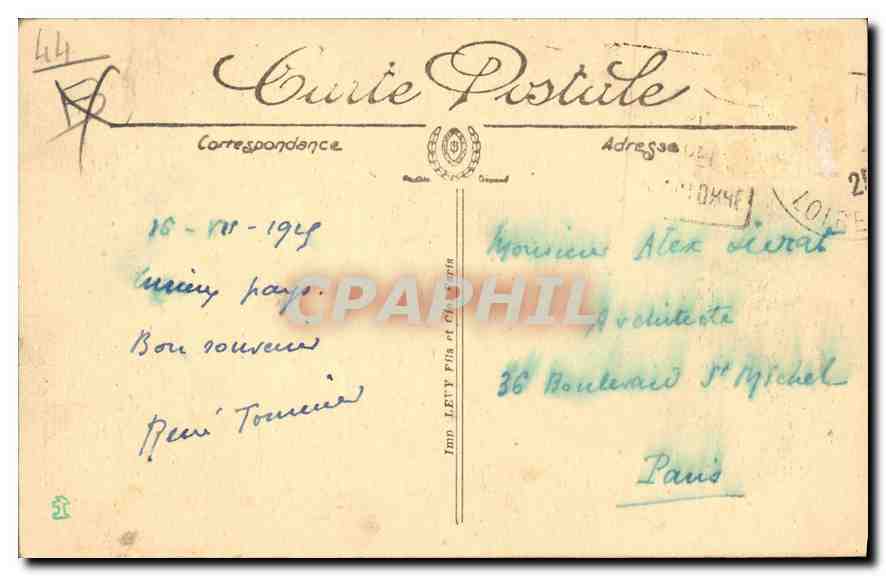 44
Carte Postale
Correspondance
Adresse
16 - VII - 1925
pays.
Bon souvenir
René
Monsieur Alex
Architecte
36 Boulevard St Michel
Paris
Imp. LEVY Fils et Cie, Paris
CPAPHIL
LOIRE